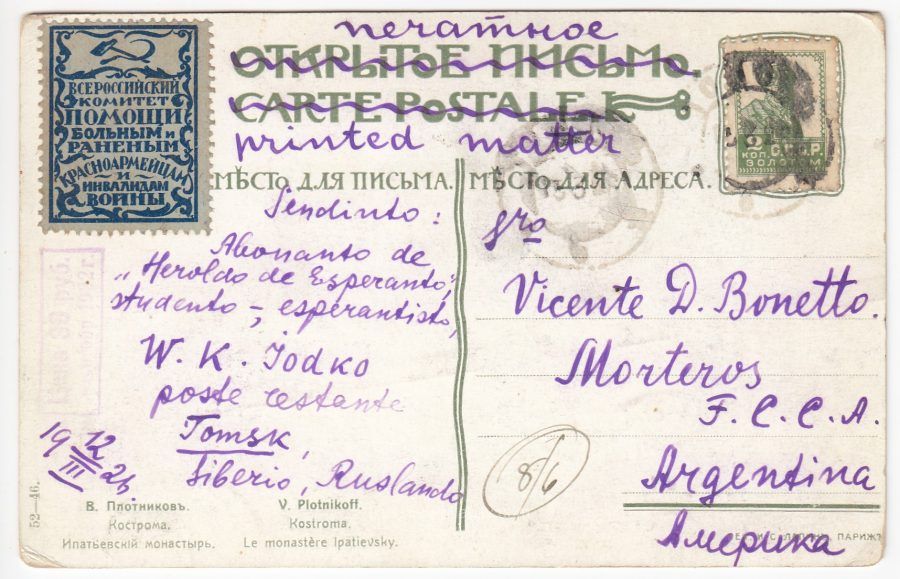 печатное
ОТКРЫТОЕ ПИСЬМО.
CARTE POSTALE.
printed matter
ВСЕРОССИЙСКИЙ
КОМИТЕТ
ПОМОЩИ
БОЛЬНЫМ и
РАНЕНЫМ
КРАСНОАРМЕЙЦАМ
И
ИНВАЛИДАМ
ВОЙНЫ
2
КОП.
С.С.С.Р.
ЗОЛОТОМ
МѢСТО ДЛЯ ПИСЬМА.
МѢСТО ДЛЯ АДРЕСА.
Sendinto:
Abonanto de
„Heroldo de Esperanto",
studento-esperantisto,
W. K. Jodko
poste restante
Tomsk,
Siberio, Ruslando
19 12/III 24
Sro
Vicente D. Bonetto.
Morteros
F. C. C. A.
Argentina
Америка
8/6
52-46.
В. Плотниковъ.
Кострома.
Ипатьевскій монастырь.
V. Plotnikoff.
Kostroma.
Le monastère Ipatievsky.
ПАРИЖЪ